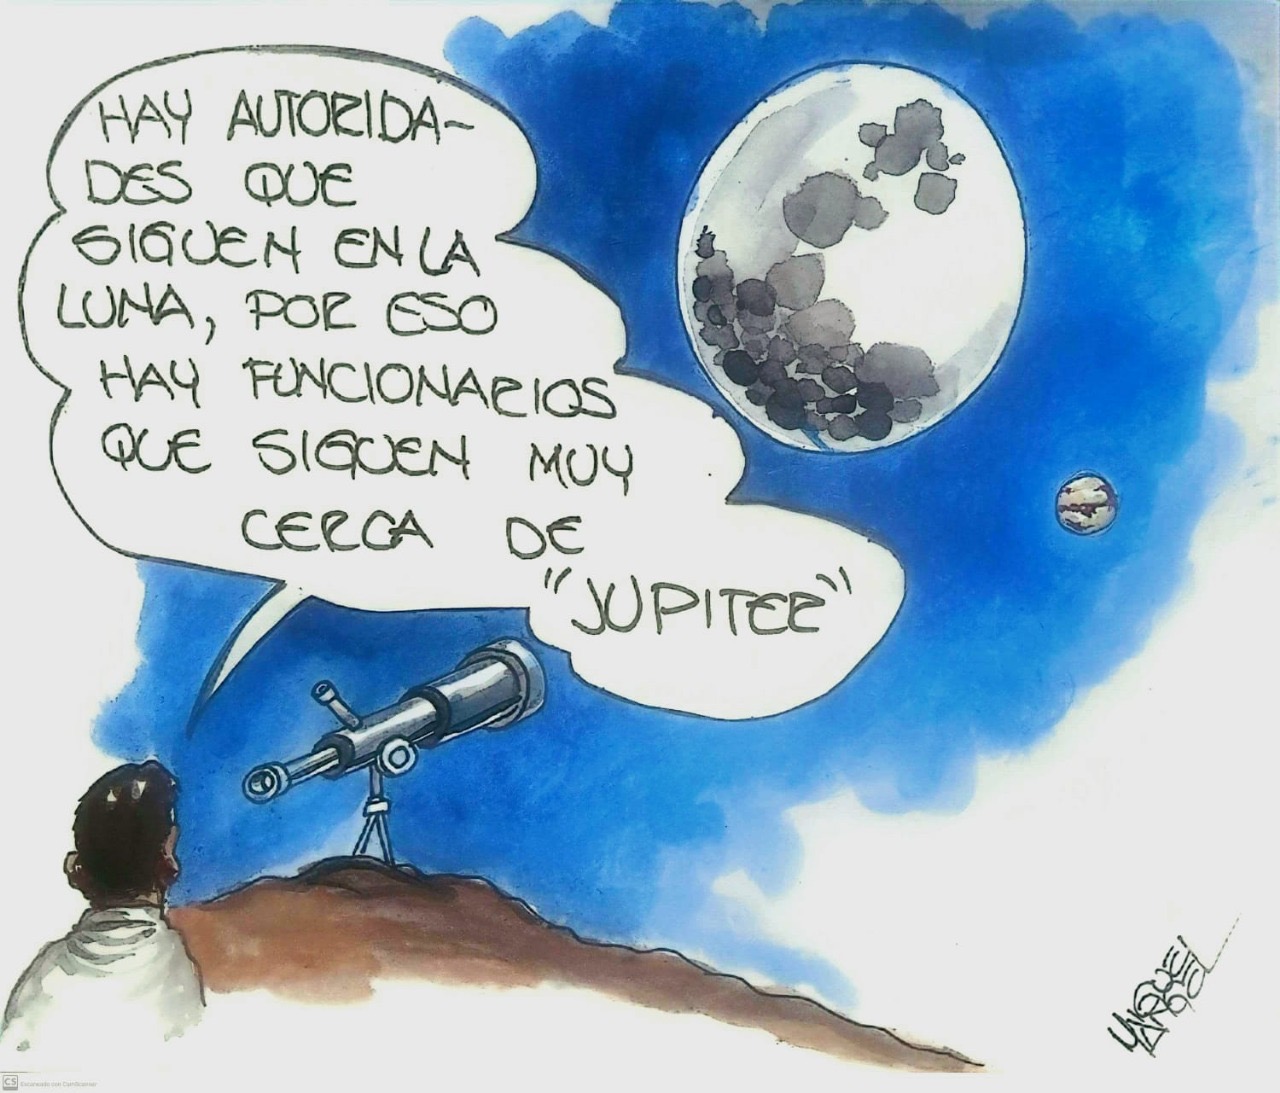 HAY AUTORIDA-
DES QUE
SIGUEN EN LA
LUNA, POR ESO
HAY FUNCIONARIOS
QUE SIGUEN MUY
CERCA DE
"JUPITER"
CS Escaneado con CamScanner